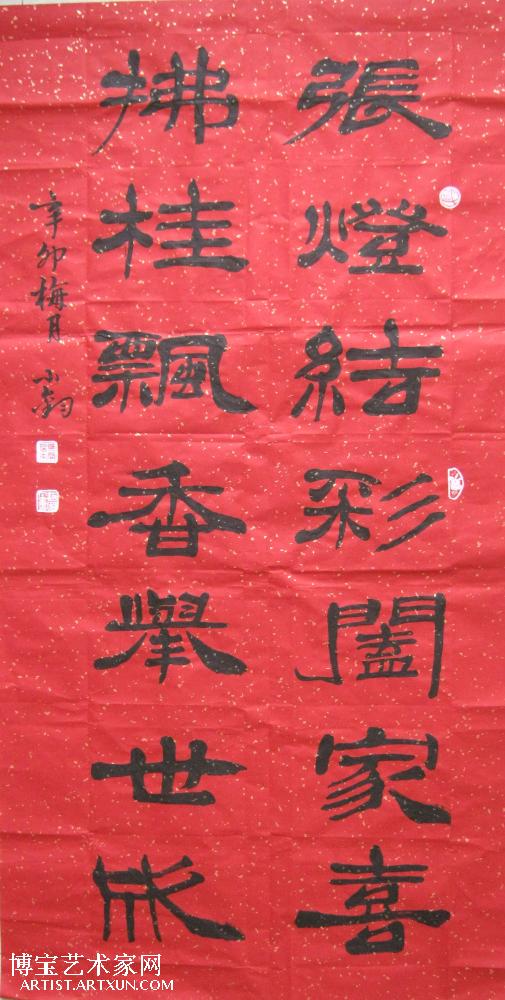 張燈結彩闔家喜
拂桂飄香舉世
辛卯梅月 小
博宝艺术家网
ARTIST.ARTXUN.COM